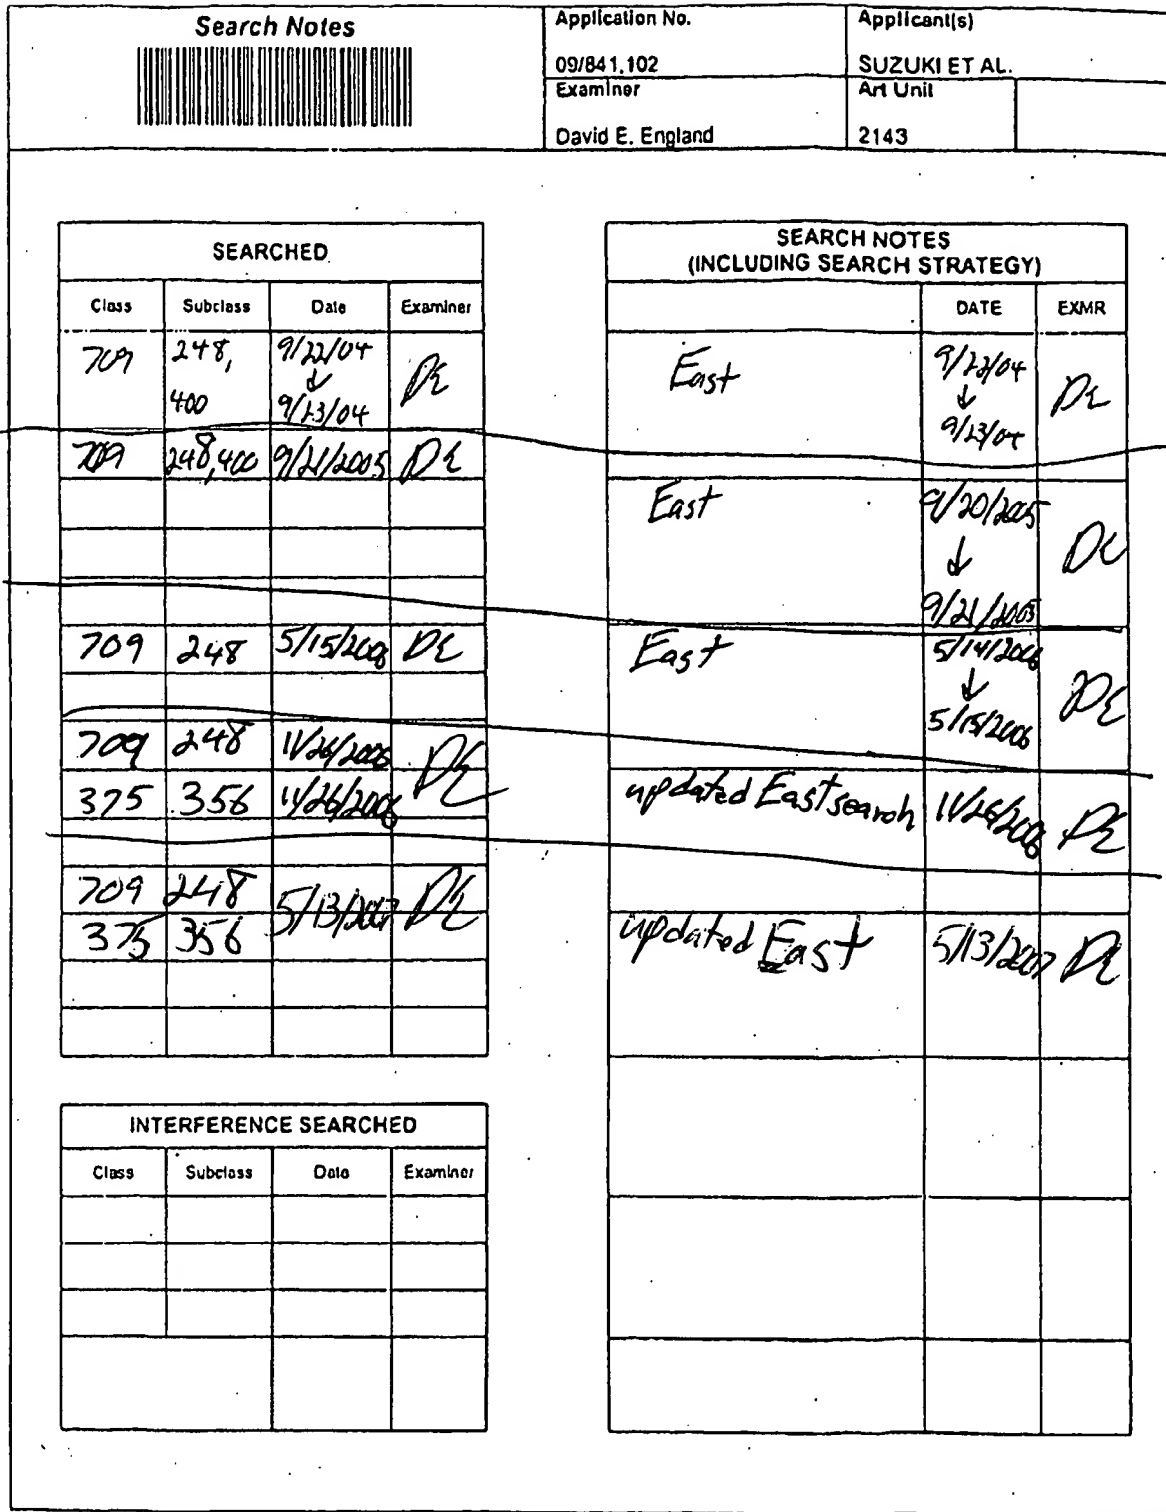 Search Notes
Application No.
Applicant(s)
09/841,102
SUZUKI ET AL.
Examiner
Art Unit
David E. England
2143
SEARCHED
Class Subclass Date Examiner
709 248, 9/22/04 DE
↓
400 9/23/04
709 248,400 9/21/2005 DE
709 248 5/15/2006 DE
709 248 11/26/2006 DE
375 356 11/26/2006
709 248 5/13/2007 DE
375 356
INTERFERENCE SEARCHED
Class Subclass Date Examiner
SEARCH NOTES
(INCLUDING SEARCH STRATEGY)
DATE EXMR
East 9/22/04 DE
↓
9/23/04
East 9/20/2005 DE
↓
9/21/2005
East 5/14/2006 DE
↓
5/15/2006
updated East search 11/26/2006 DE
updated East 5/13/2007 DE